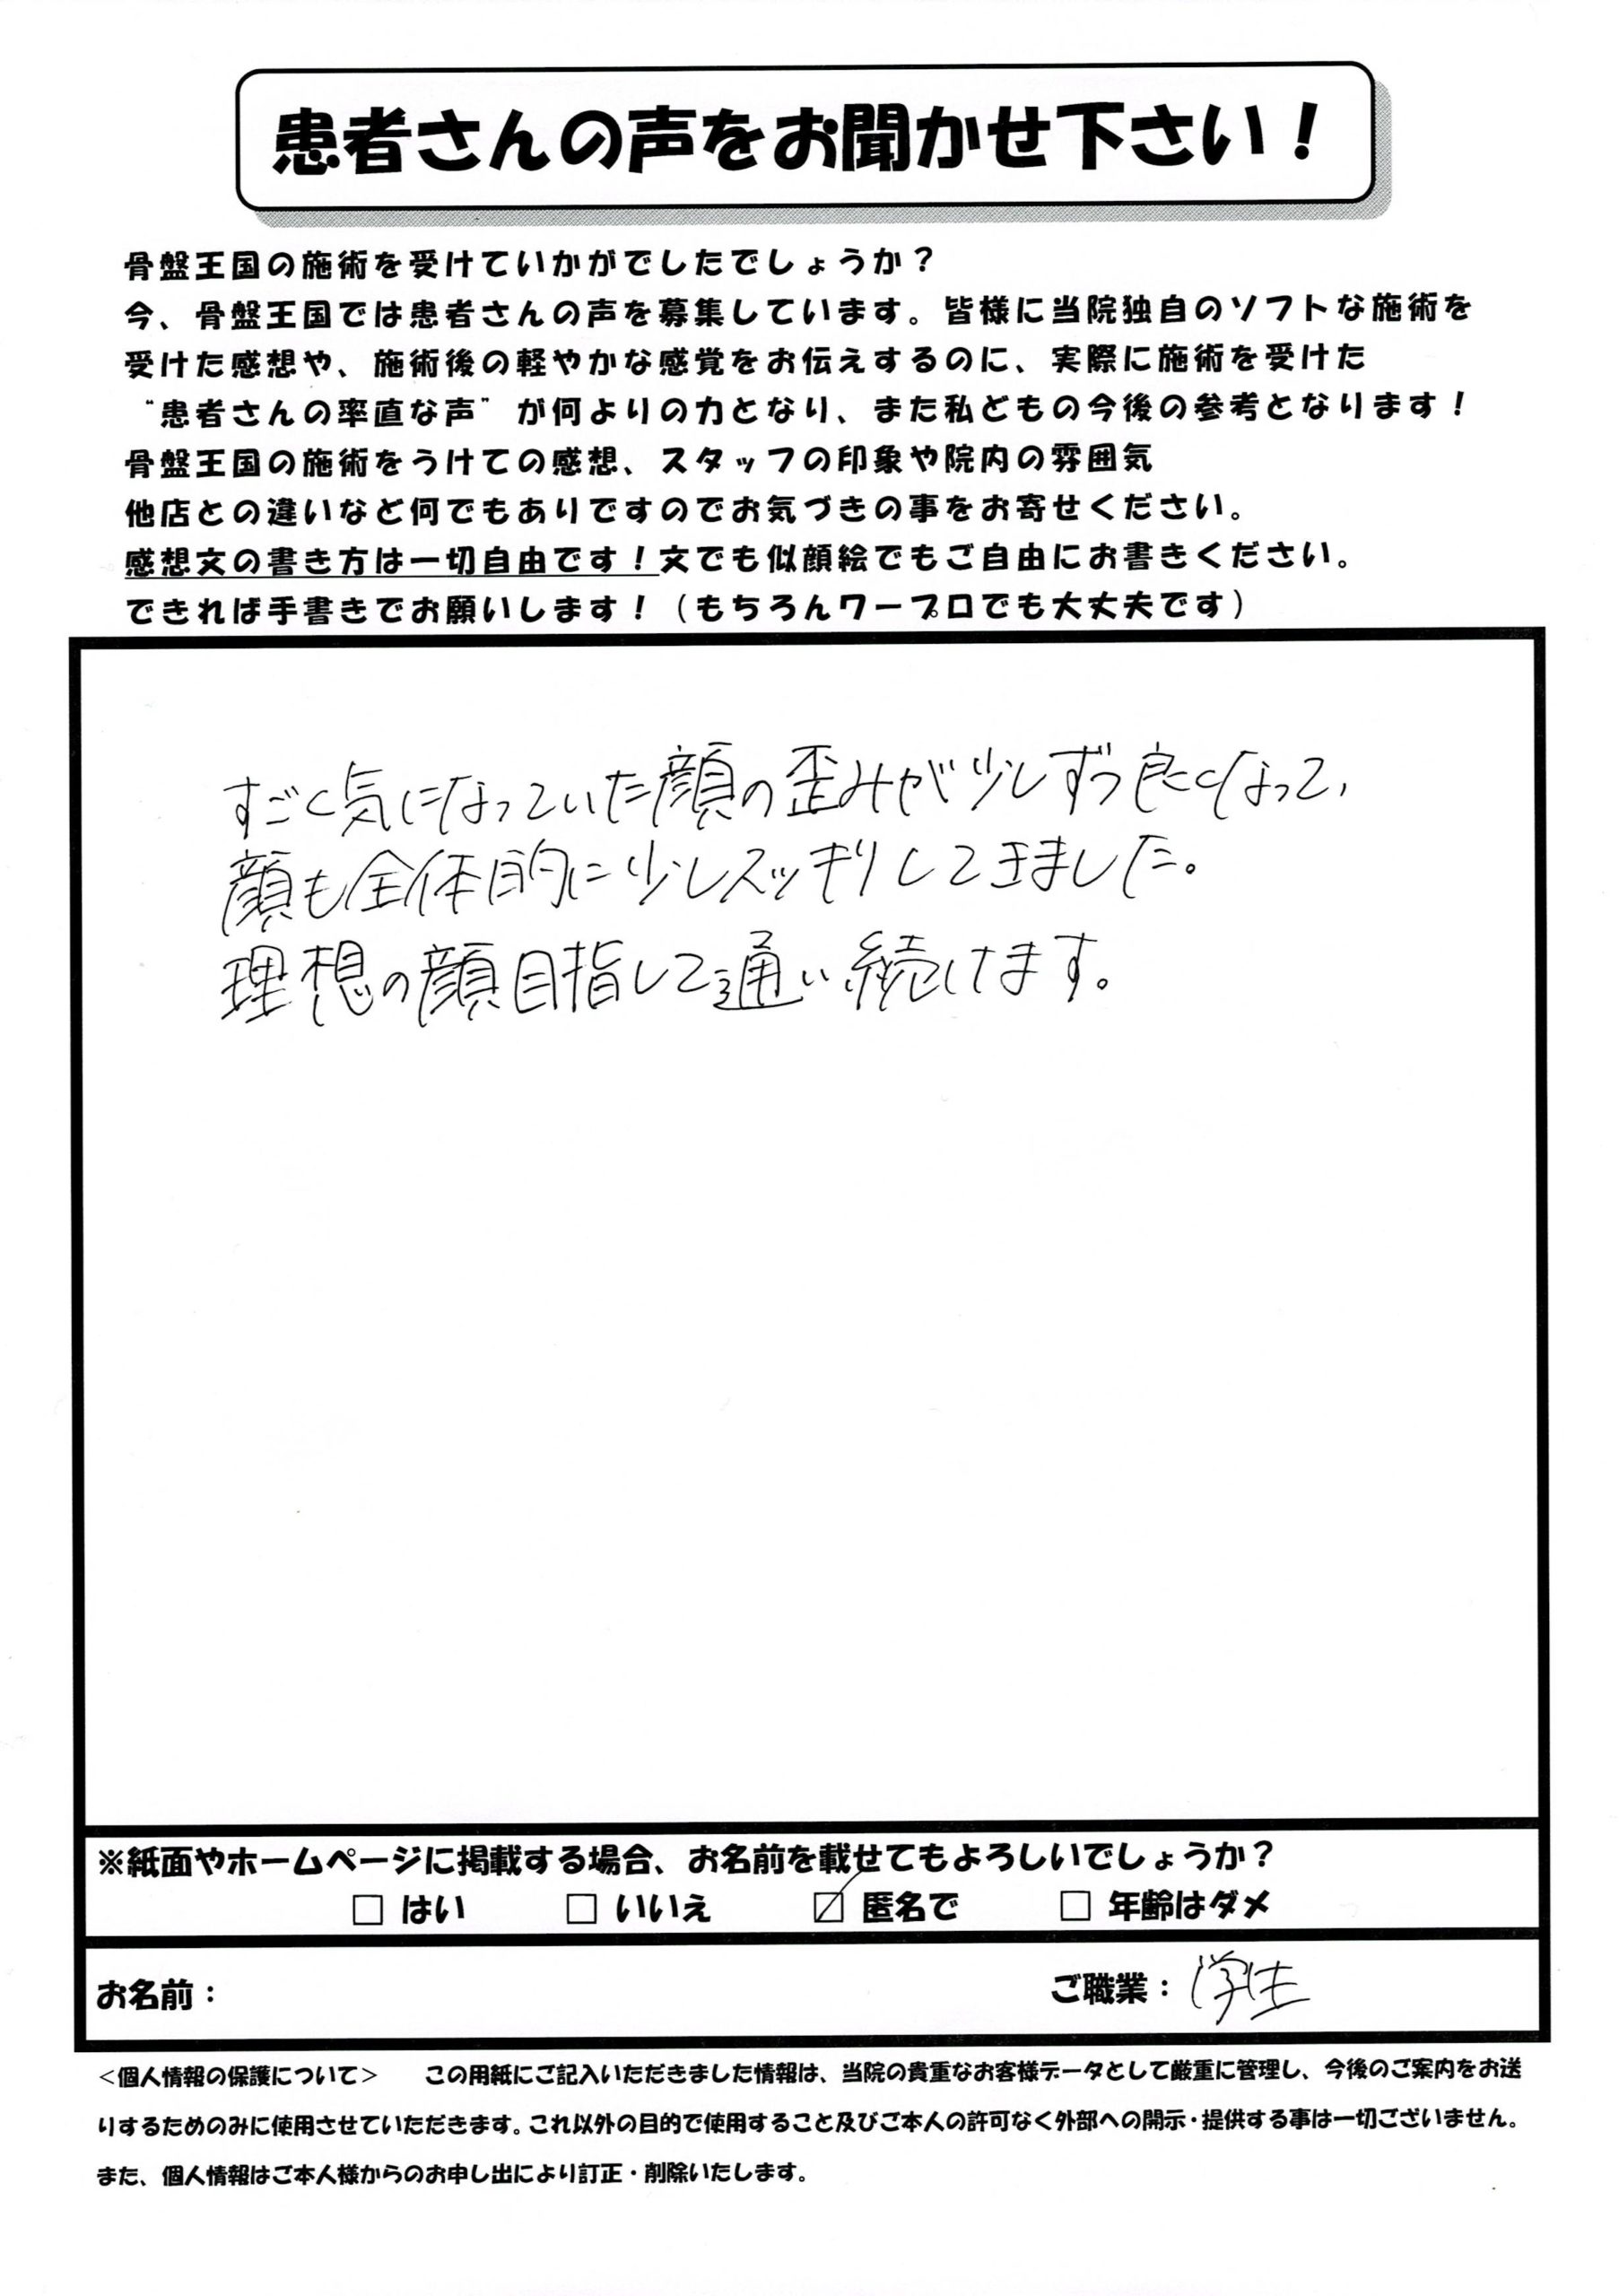 患者さんの声をお聞かせ下さい！
骨盤王国の施術を受けていかがでしたでしょうか？
今、骨盤王国では患者さんの声を募集しています。皆様に当院独自のソフトな施術を
受けた感想や、施術後の軽やかな感覚をお伝えするのに、実際に施術を受けた
“患者さんの率直な声”が何よりの力となり、また私どもの今後の参考となります！
骨盤王国の施術をうけての感想、スタッフの印象や院内の雰囲気
他店との違いなど何でもありですのでお気づきの事をお寄せください。
感想文の書き方は一切自由です！文でも似顔絵でもご自由にお書きください。
できれば手書きでお願いします！（もちろんワープロでも大丈夫です）
すごく気になっていた顔の歪みが少しずつ良くなって、
顔も全体的に少しスッキリしてきました。
理想の顔目指して通い続けます。
※紙面やホームページに掲載する場合、お名前を載せてもよろしいでしょうか？
□ はい □ いいえ ☑ 匿名で □ 年齢はダメ
お名前： ご職業：学生
＜個人情報の保護について＞ この用紙にご記入いただきました情報は、当院の貴重なお客様データとして厳重に管理し、今後のご案内をお送
りするためのみに使用させていただきます。これ以外の目的で使用すること及びご本人の許可なく外部への開示・提供する事は一切ございません。
また、個人情報はご本人様からのお申し出により訂正・削除いたします。